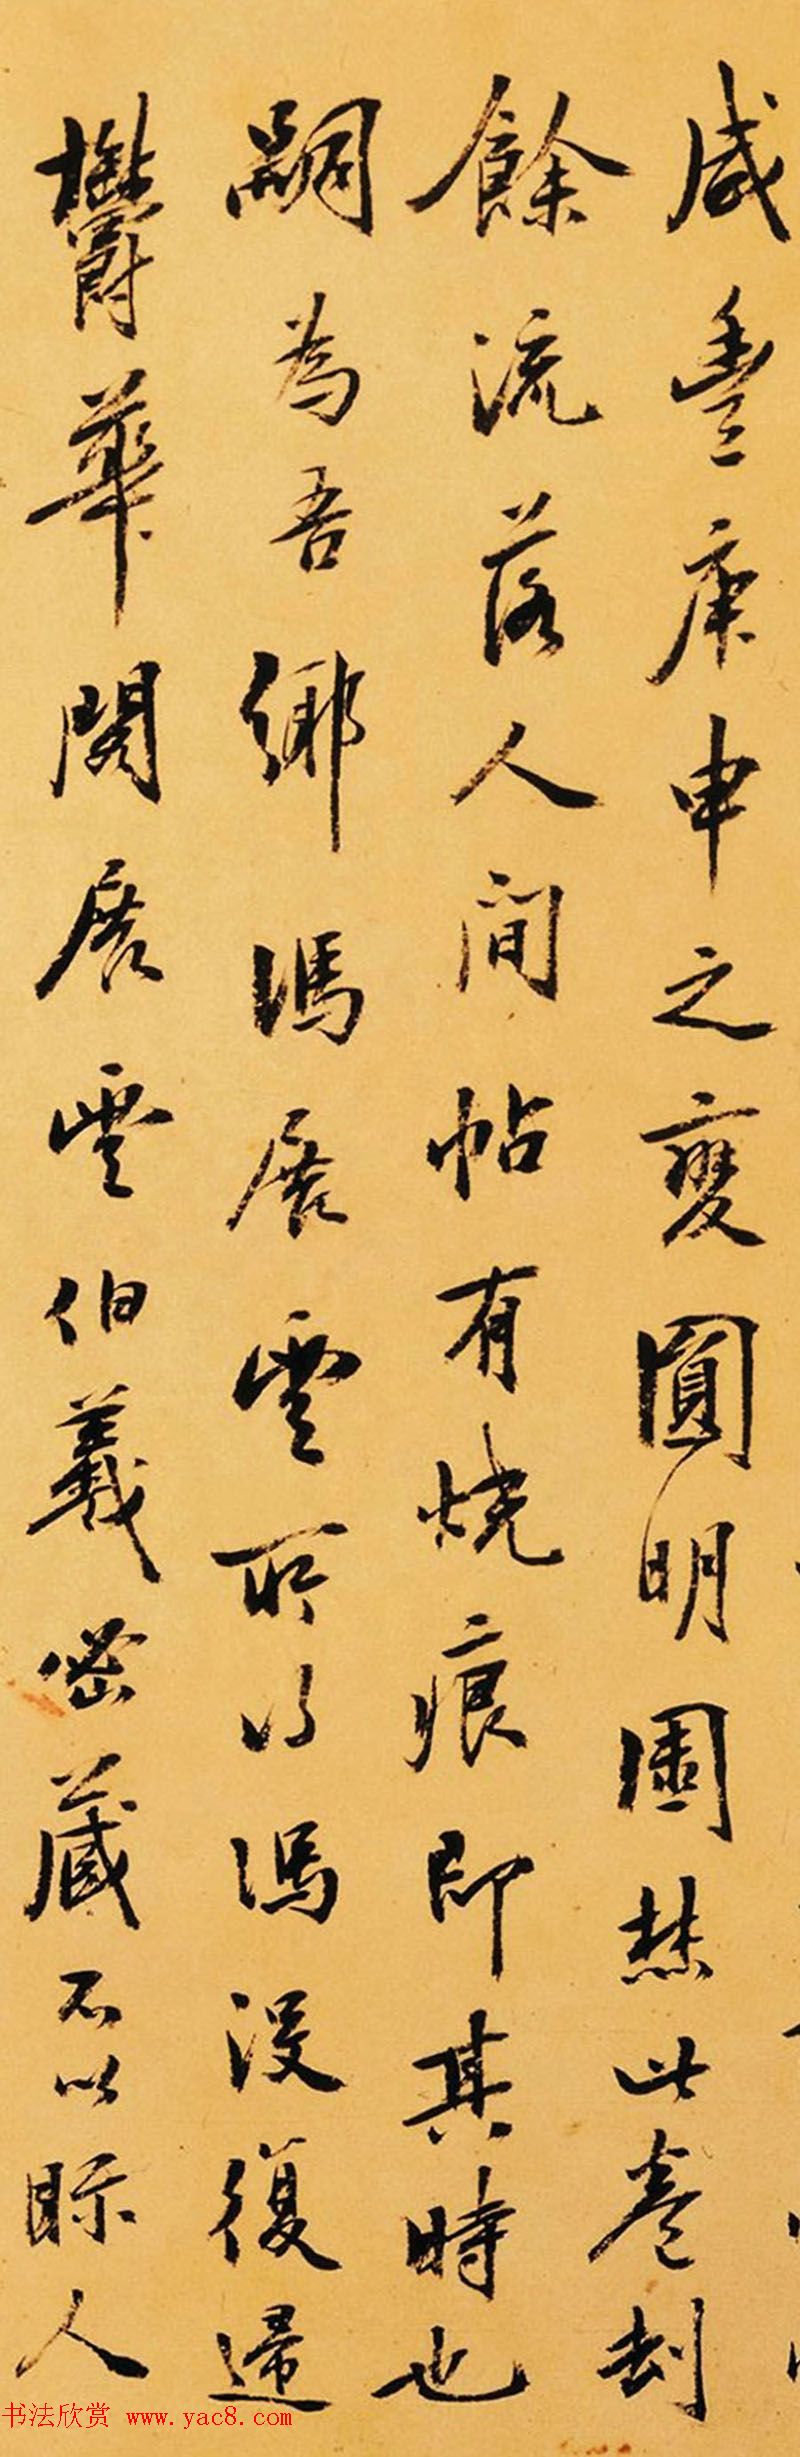 咸豐庚申之變圓明園焚此卷刦
餘流落人間帖有燒痕即其時也
嗣為吾鄉馮展雲所得馮沒復歸
鬱華閣展雲伯羲密藏不以眎人
书法欣赏 www.yac8.com